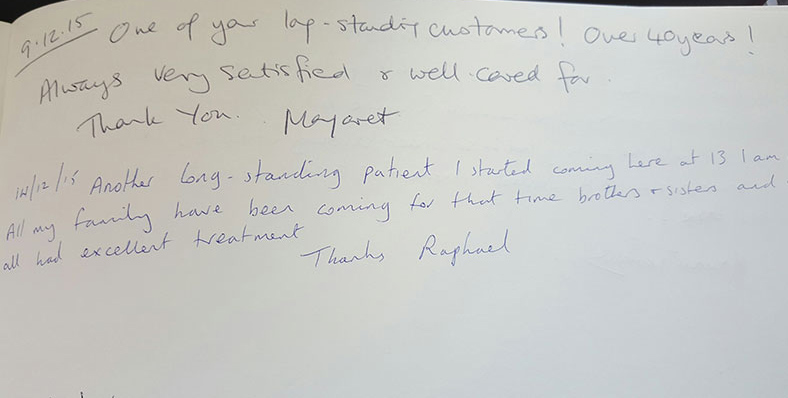 9.12.15 One of your long-standing customers! Over 40 years!
Always very satisfied & well-cared for.
Thank You. Margaret
14/12/15 Another long-standing patient I started coming here at 13 I am
All my family have been coming for that time brothers & sisters and
all had excellent treatment
Thanks Raphael